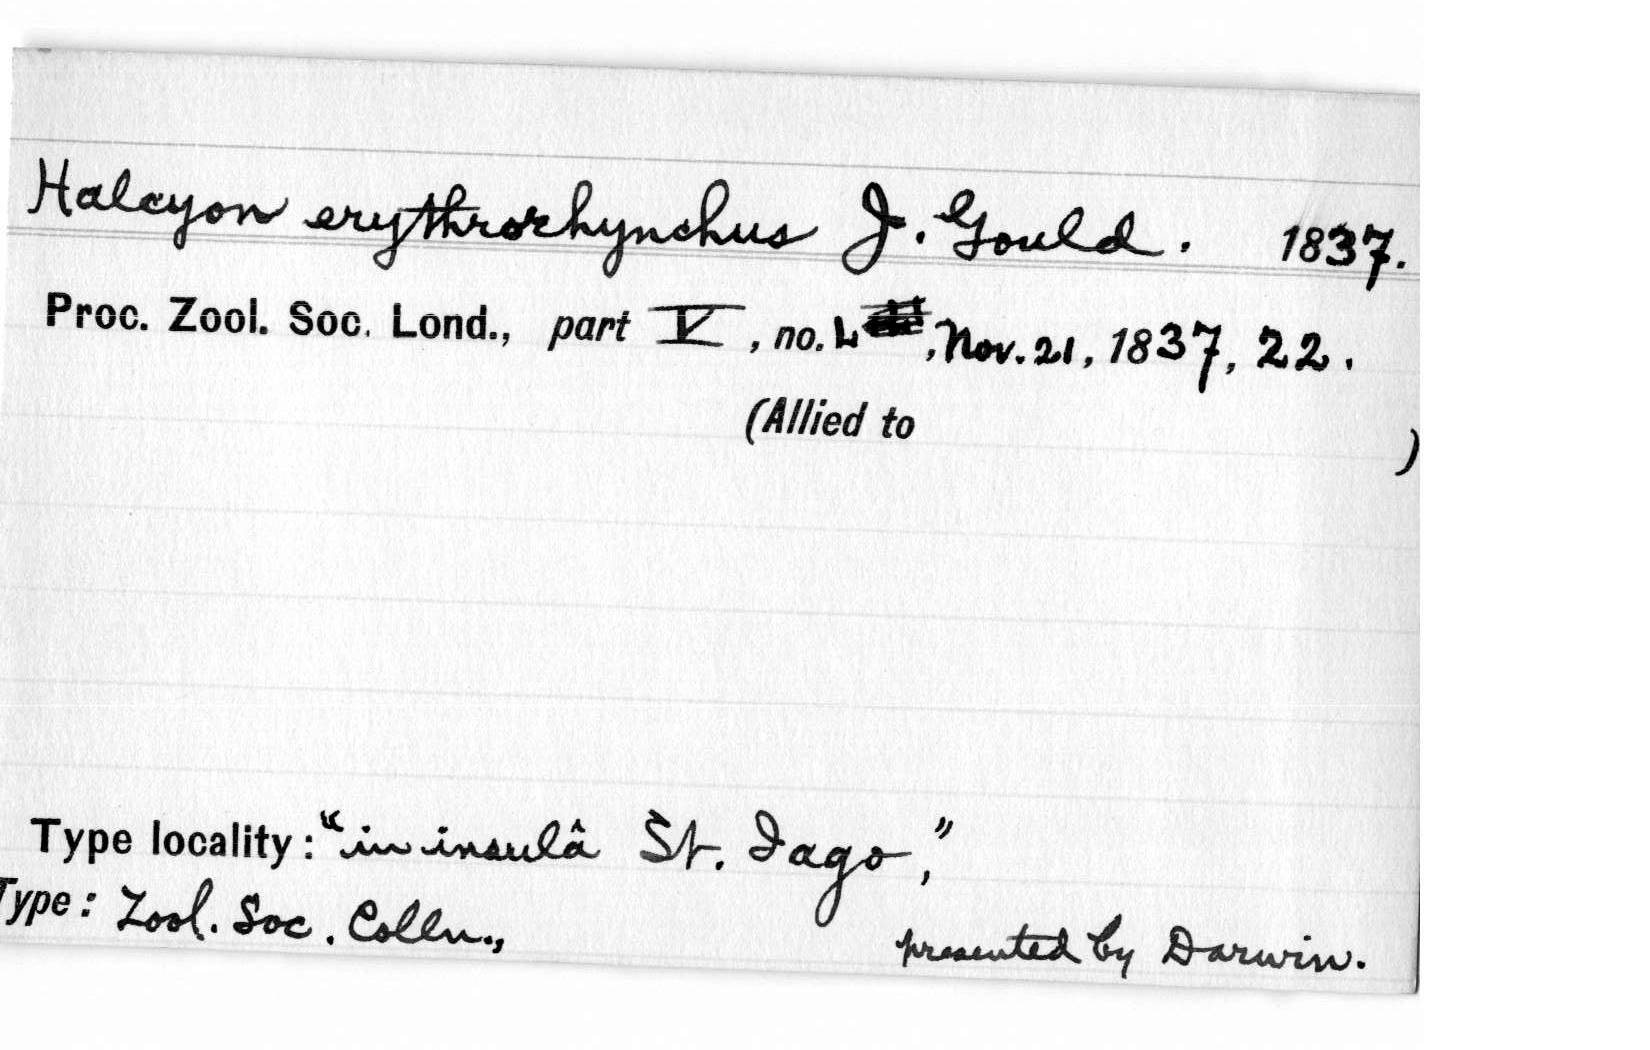 Halcyon erythrorhynchus J. Gould. 1837.
Proc. Zool. Soc. Lond., part V, no. L, Nov. 21, 1837, 22.
(Allied to )
Type locality: "in insulâ St. Iago,"
Type: Zool. Soc. Colln., presented by Darwin.